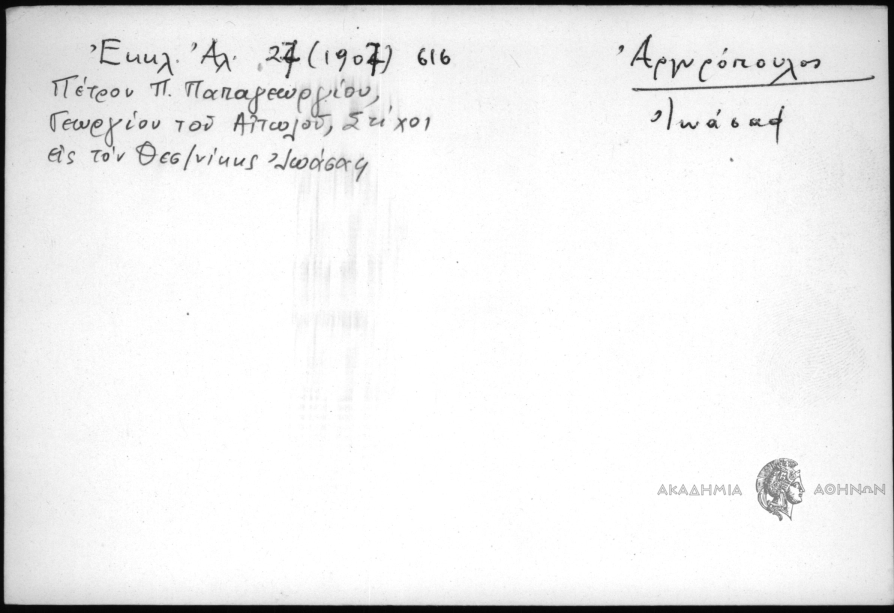 Ἐκκλ. Ἀλ. 27 (1907) 616
Πέτρου Π. Παπαγεωργίου,
Γεωργίου τοῦ Αἰτωλοῦ, Στίχοι
εἰς τὸν Θεσ/νίκης Ἰωάσαφ
Ἀργυρόπουλος
Ἰωάσαφ
ΑΚΑΔΗΜΙΑ ΑΘΗΝΩΝ